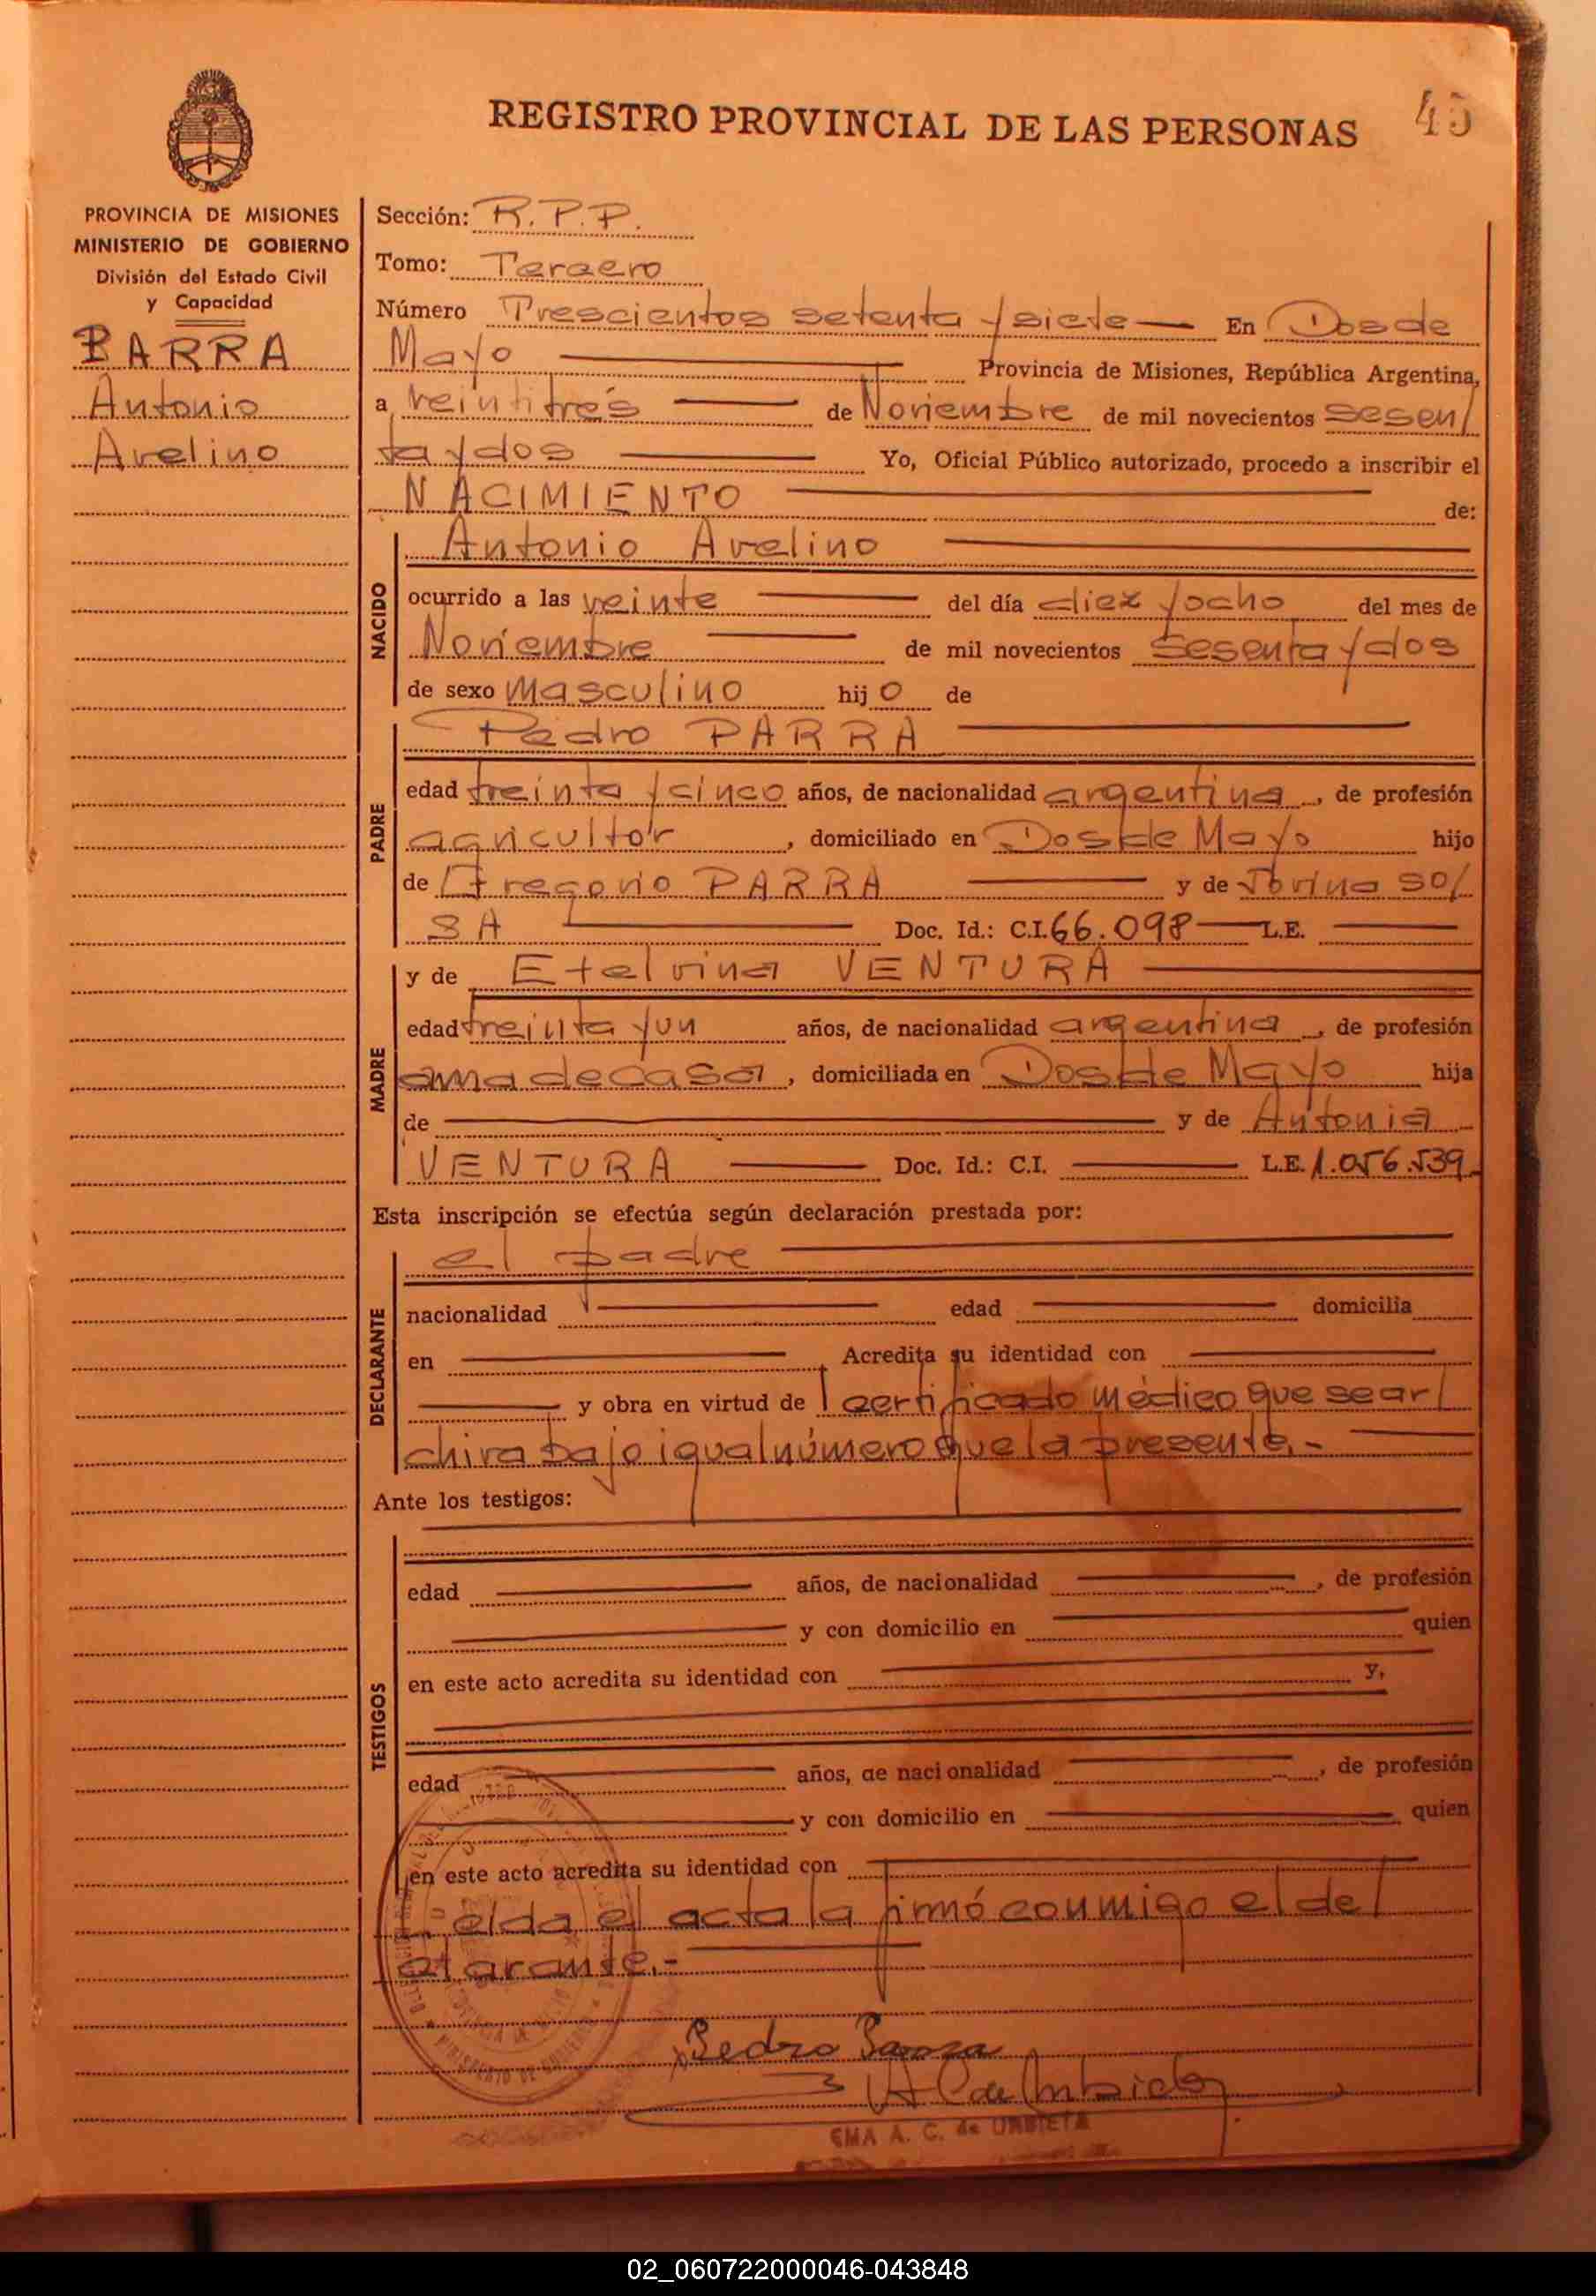 REGISTRO PROVINCIAL DE LAS PERSONAS
45
PROVINCIA DE MISIONES
MINISTERIO DE GOBIERNO
División del Estado Civil
y Capacidad
BARRA
Antonio
Avelino
Sección: R.P.P.
Tomo: Tercero
Número Trescientos setenta y siete — En Dos de
Mayo — Provincia de Misiones, República Argentina,
a veintitrés — de Noviembre de mil novecientos sesen/
ta y dos — Yo, Oficial Público autorizado, procedo a inscribir el
NACIMIENTO — de:
NACIDO
Antonio Avelino —
ocurrido a las veinte — del día diez y ocho del mes de
Noviembre — de mil novecientos sesenta y dos
de sexo masculino hijo de
PADRE
Pedro PARRA —
edad treinta y cinco años, de nacionalidad argentina, de profesión
agricultor, domiciliado en Dos de Mayo hijo
de Gregorio PARRA — y de SO/
SA — Doc. Id.: C.I. 66.098 — L.E. —
MADRE
y de Etelvina VENTURA —
edad treinta y un años, de nacionalidad argentina, de profesión
ama de casa, domiciliada en Dos de Mayo hija
de — y de Antonia
VENTURA — Doc. Id.: C.I. — L.E. 1.056.539.
Esta inscripción se efectúa según declaración prestada por:
DECLARANTE
el padre —
nacionalidad — edad — domicilia
en — Acredita su identidad con —
— y obra en virtud de certificado médico que se ar/
chiva bajo igual número que la presente.-
Ante los testigos:
TESTIGOS
edad — años, de nacionalidad — , de profesión
— y con domicilio en — quien
en este acto acredita su identidad con — y,
edad — años, de nacionalidad — , de profesión
— y con domicilio en — quien
en este acto acredita su identidad con —
Leída el acta la firmó conmigo el de/
clarante.-
Pedro Parra
EMA A. C. de URBIETA
02_060722000046-043848